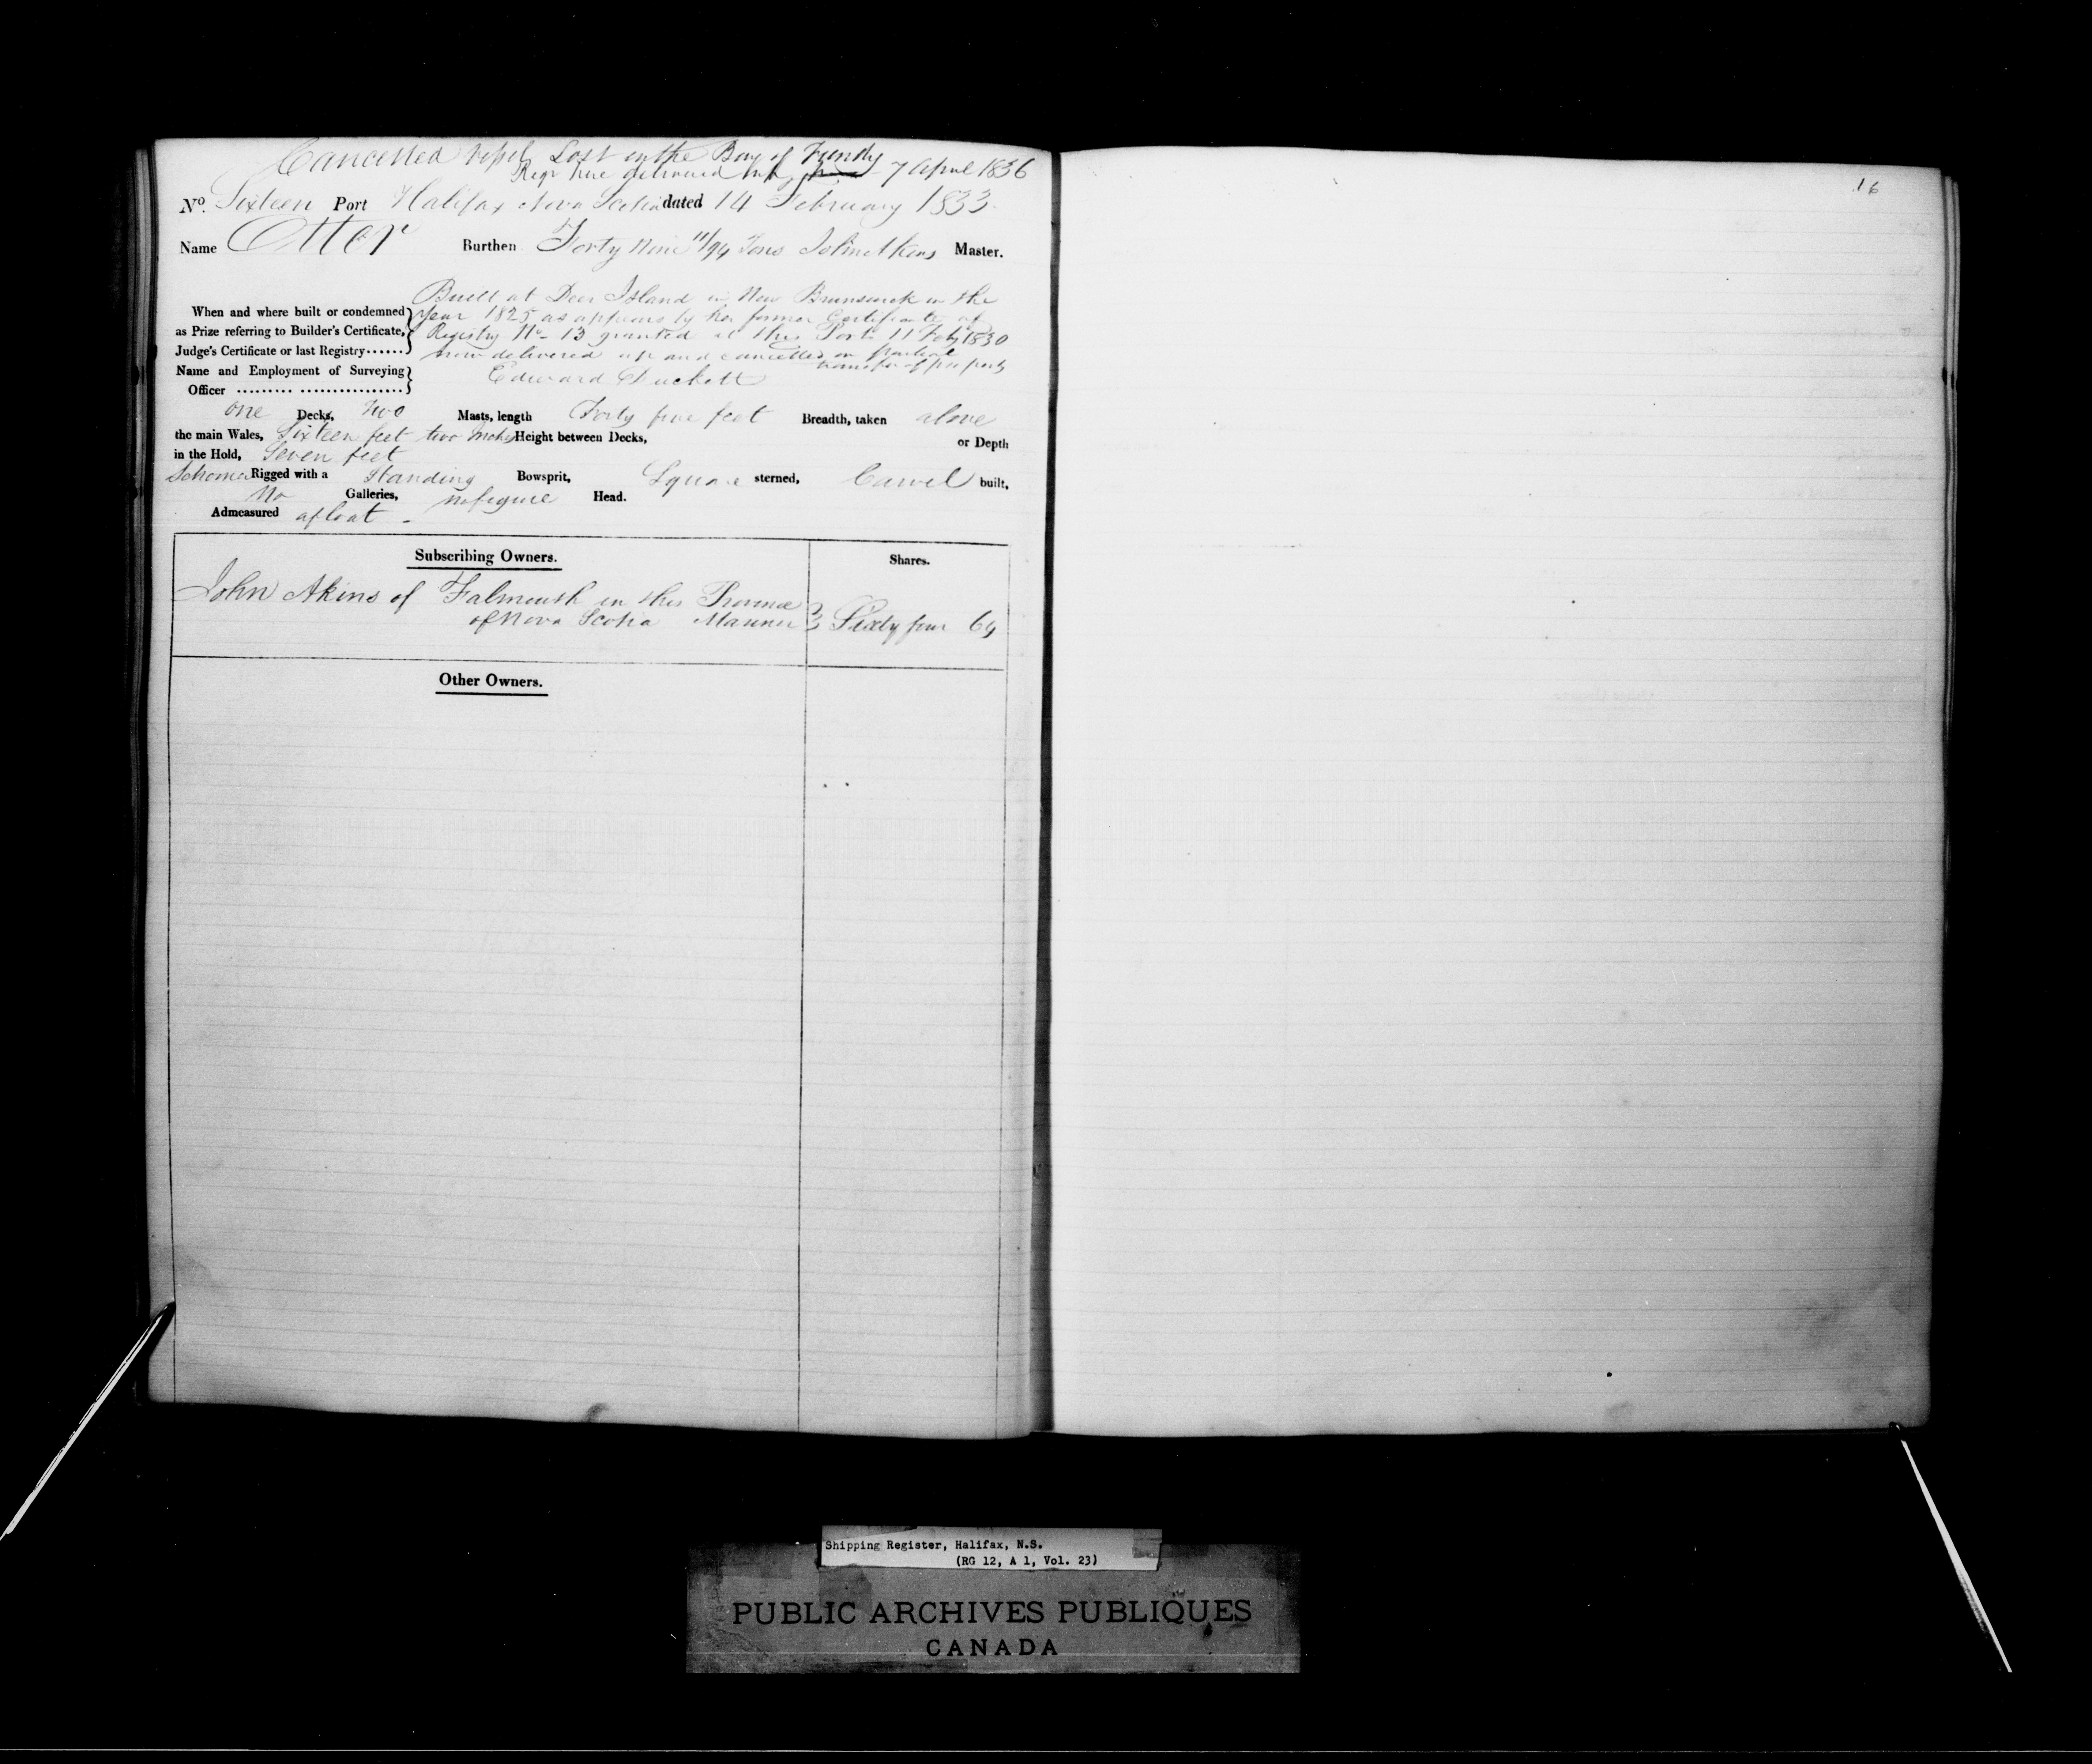 Cancelled Vessel Lost in the Bay of Fundy
Regr here delivered up 7 April 1836
No. Sixteen Port Halifax Nova Scotia dated 14 February 1833.
Name Otter Burthen Forty Nine 11/94 Tons John Akins Master.
Built at Deer Island in New Brunswick in the
When and where built or condemned year 1825 as appears by her former Certificate of
as Prize referring to Builder's Certificate, Registry No. 13 granted at this Port 11 Feby 1830
Judge's Certificate or last Registry...... now delivered up and cancelled on partial
transfer of property
Name and Employment of Surveying Edward Duckett
Officer ......... ................
one Decks, Two Masts, length Forty five feet Breadth, taken above
the main Wales, Sixteen feet two Inches Height between Decks, or Depth
in the Hold, Seven feet
Schooner Rigged with a Standing Bowsprit, Square sterned, Carvel built,
No Galleries, no figure Head.
Admeasured afloat -
Subscribing Owners. Shares.
John Akins of Falmouth in this Province
of Nova Scotia Mariner Sixty four 64
Other Owners.
16
Shipping Register, Halifax, N.S.
(RG 12, A 1, Vol. 23)
PUBLIC ARCHIVES PUBLIQUES
CANADA